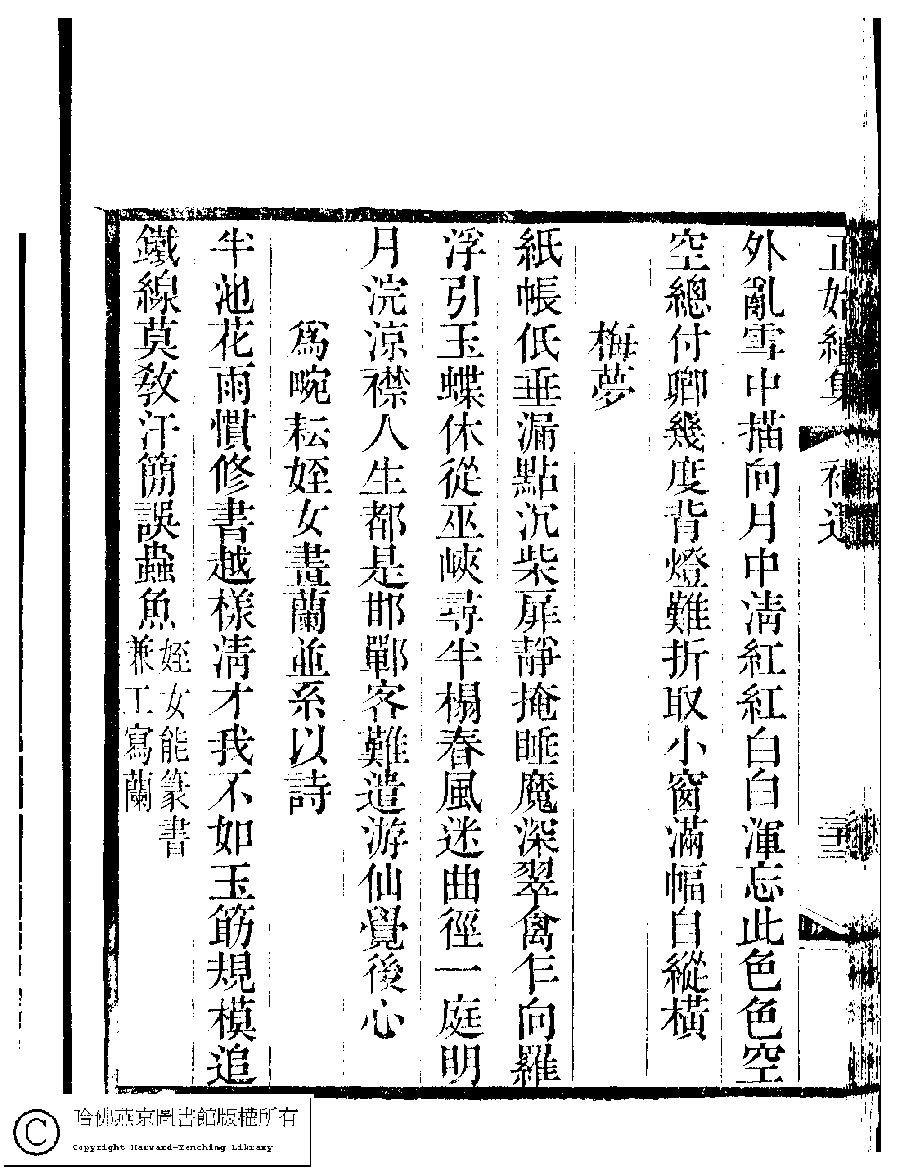 正始續集
補遺
外亂雪中描向月中淸紅紅白白渾忘此色色空
空總付卿幾度背燈難折取小窗滿幅自縱橫
梅夢
紙帳低垂漏點沉柴扉靜掩睡魔深翠禽乍向羅
浮引玉蝶休從巫峽尋半榻春風迷曲徑一庭明
月浣涼襟人生都是邯鄲客難遣游仙覺後心
爲畹耘姪女畫蘭並系以詩
半池花雨慣修書越樣淸才我不如玉筯規模追
鐵線莫敎汗簡誤蟲魚
姪女能篆書
兼工寫蘭
哈佛燕京圖書館版權所有
Copyright Harvard-Yenching Library